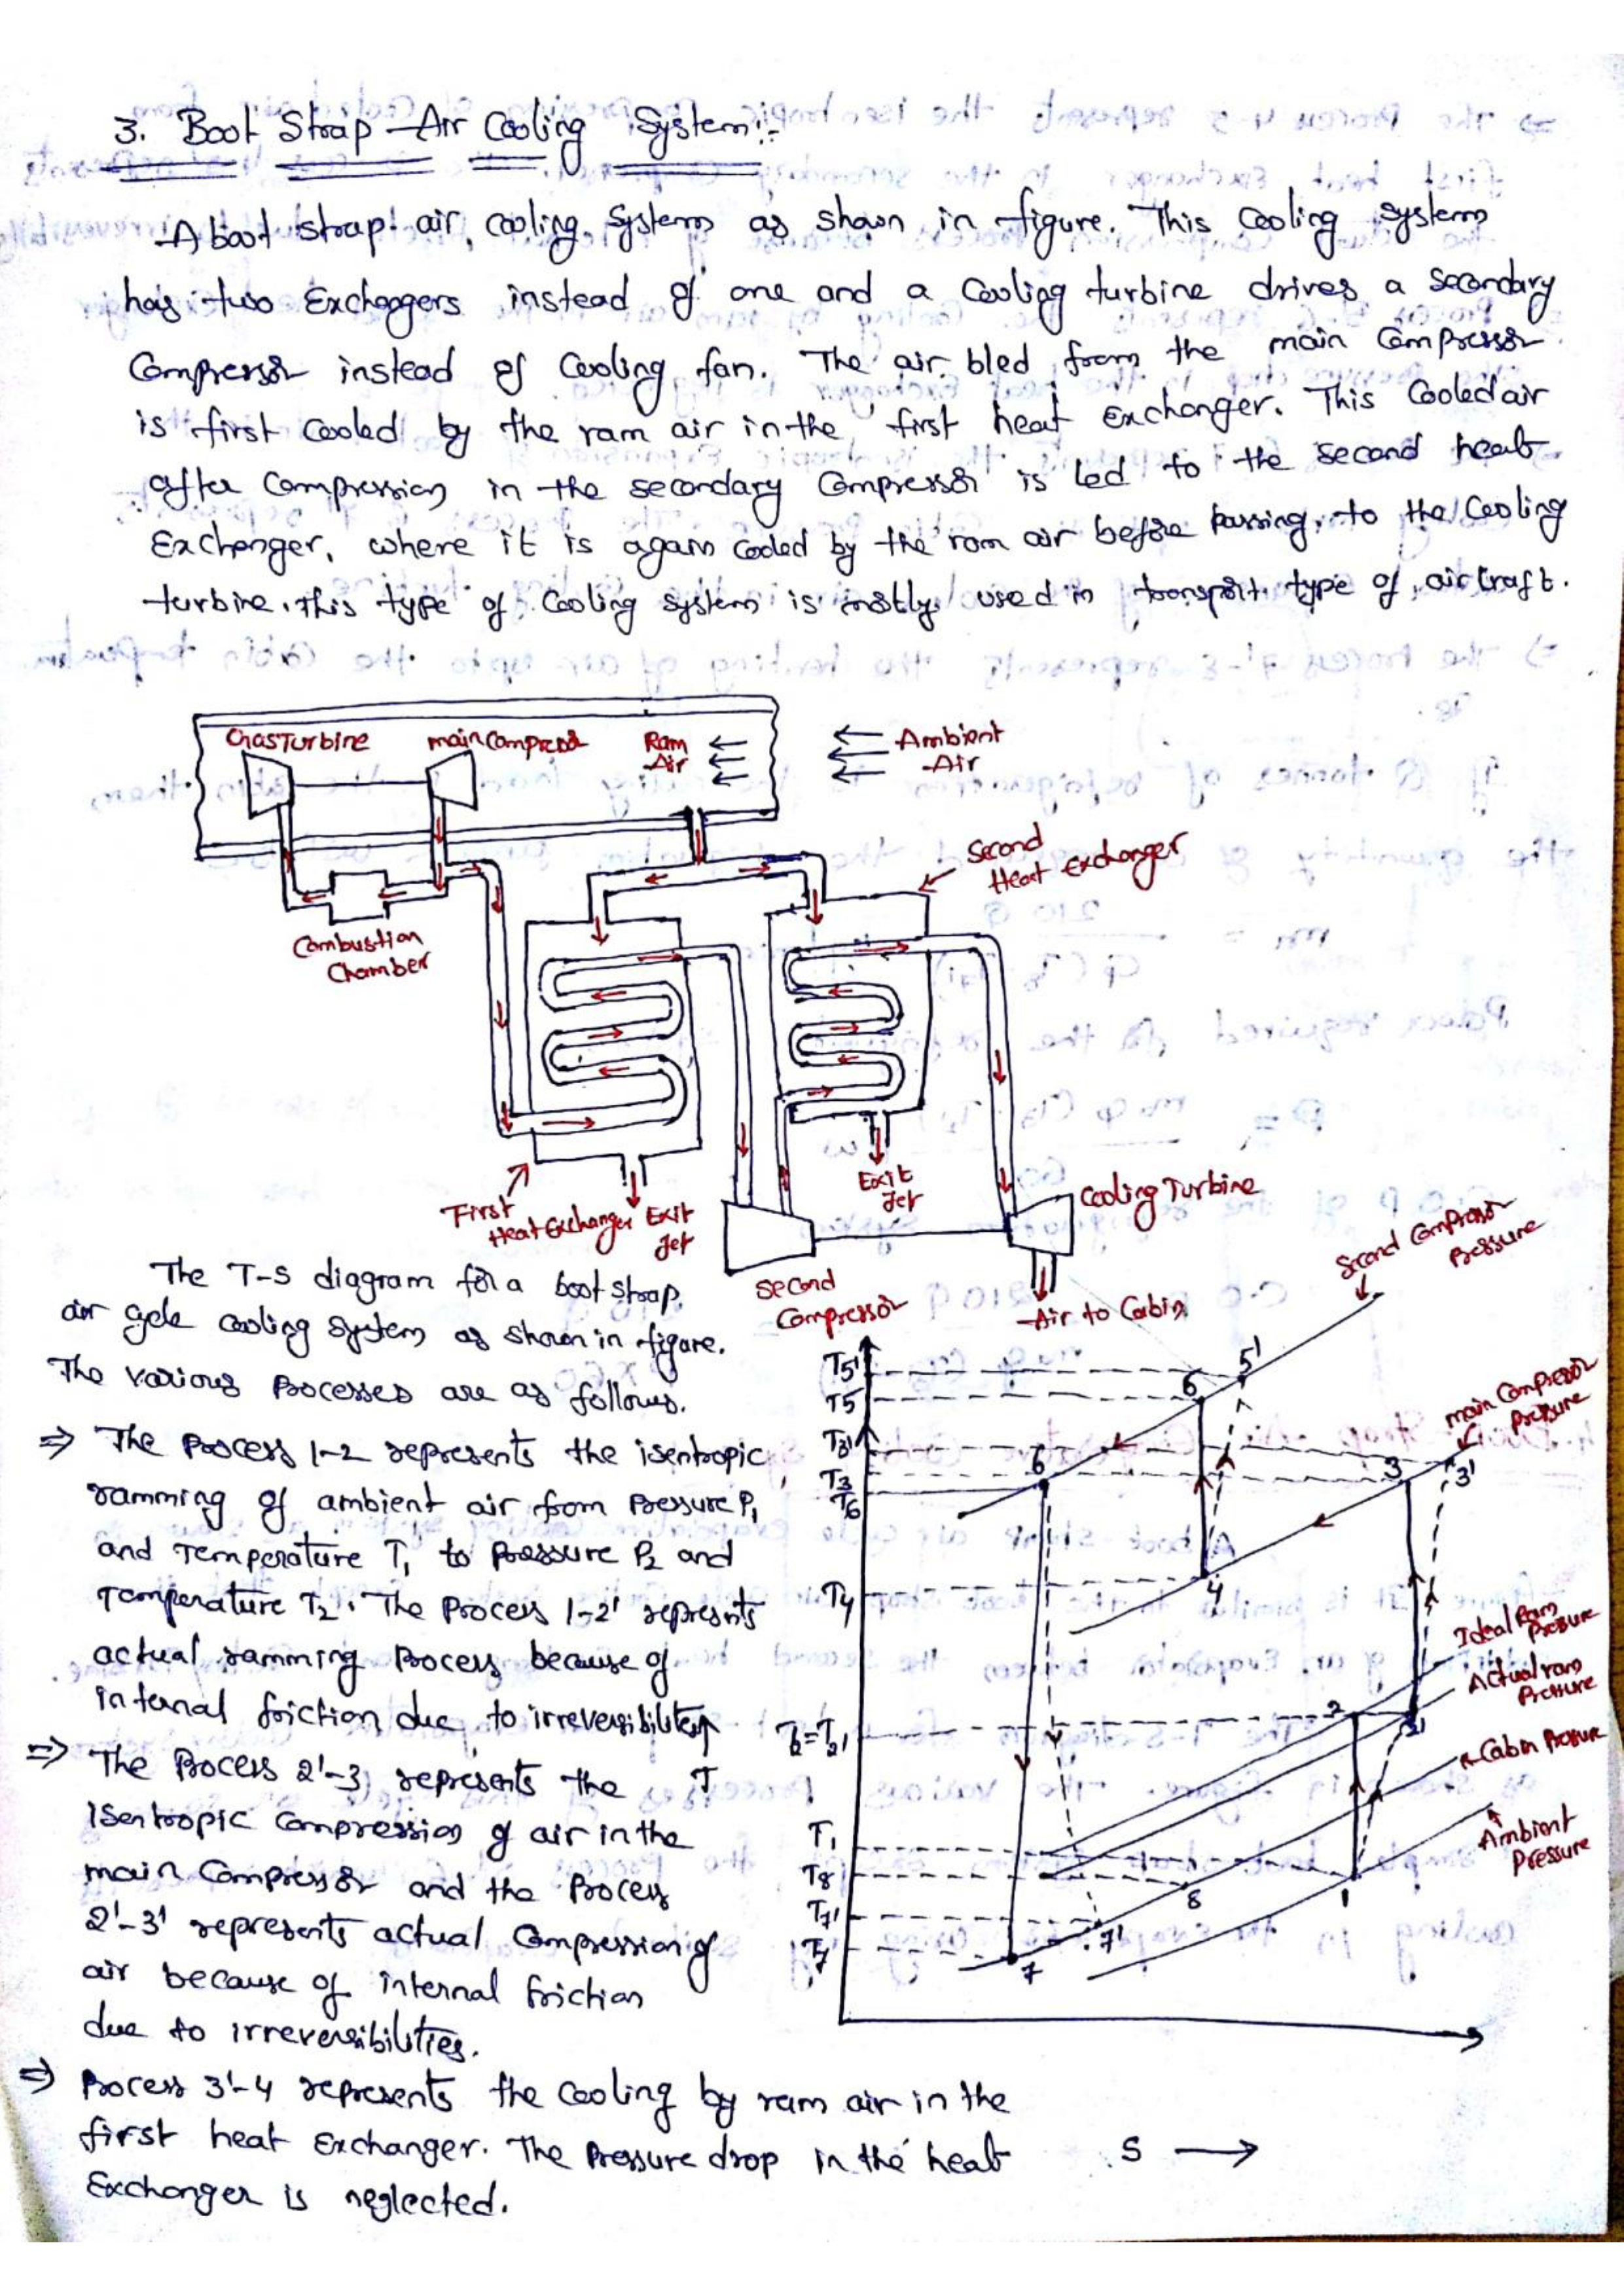 3. Boot Strap Air Cooling System:-
A boot strap air cooling system as shown in figure. This cooling system
has two Exchangers instead of one and a Cooling turbine drives a secondary
Compressor instead of Cooling fan. The air bled from the main Compressor
is first cooled by the ram air in the first heat exchanger. This Cooled air
after Compression in the secondary Compressor is led to the second heat
Exchanger, where it is again cooled by the ram air before passing to the Cooling
turbine. this type of Cooling system is mostly used in transport type of aircraft.
Gas Turbine
main Compressor
Ram
Air
Ambient
Air
Second
Heat exchanger
Combustion
Chamber
First
Heat Exchanger
Exit
Jet
Exit
Jet
Cooling Turbine
Second
Compressor
Air to Cabin
The T-S diagram for a boot strap
air cycle cooling system as shown in figure.
The various Processes are as follows.
⇒ The Process 1-2 represents the isentropic
ramming of ambient air from Pressure P1
and Temperature T1 to Pressure P2 and
Temperature T2. The Process 1-2' represents
actual ramming Process because of
internal friction due to irreversibilities
⇒ The Process 2'-3 represents the
Isentropic Compression of air in the
main Compressor and the Process
2'-3' represents actual Compression of
air because of internal friction
due to irreversibilities.
⇒ Process 3'-4 represents the cooling by ram air in the
first heat Exchanger. The Pressure drop in the heat
Exchanger is neglected.
Second Compressor
Pressure
T5'
5'
6
T5
main Compressor
Pressure
T3'
T3
6
3
3'
T6
T4
4
Ideal Ram
Pressure
Actual ram
Pressure
T2=T2'
2
2'
Cabin Pressure
T
T1
Ambient
Pressure
T8
8
1
T7'
7'
T7
7
S